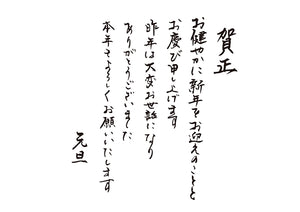 賀正
お健やかに新年をお迎えのことと
お慶び申し上げます
昨年は大変お世話になり
ありがとうございました
本年もよろしくお願いいたします
元旦